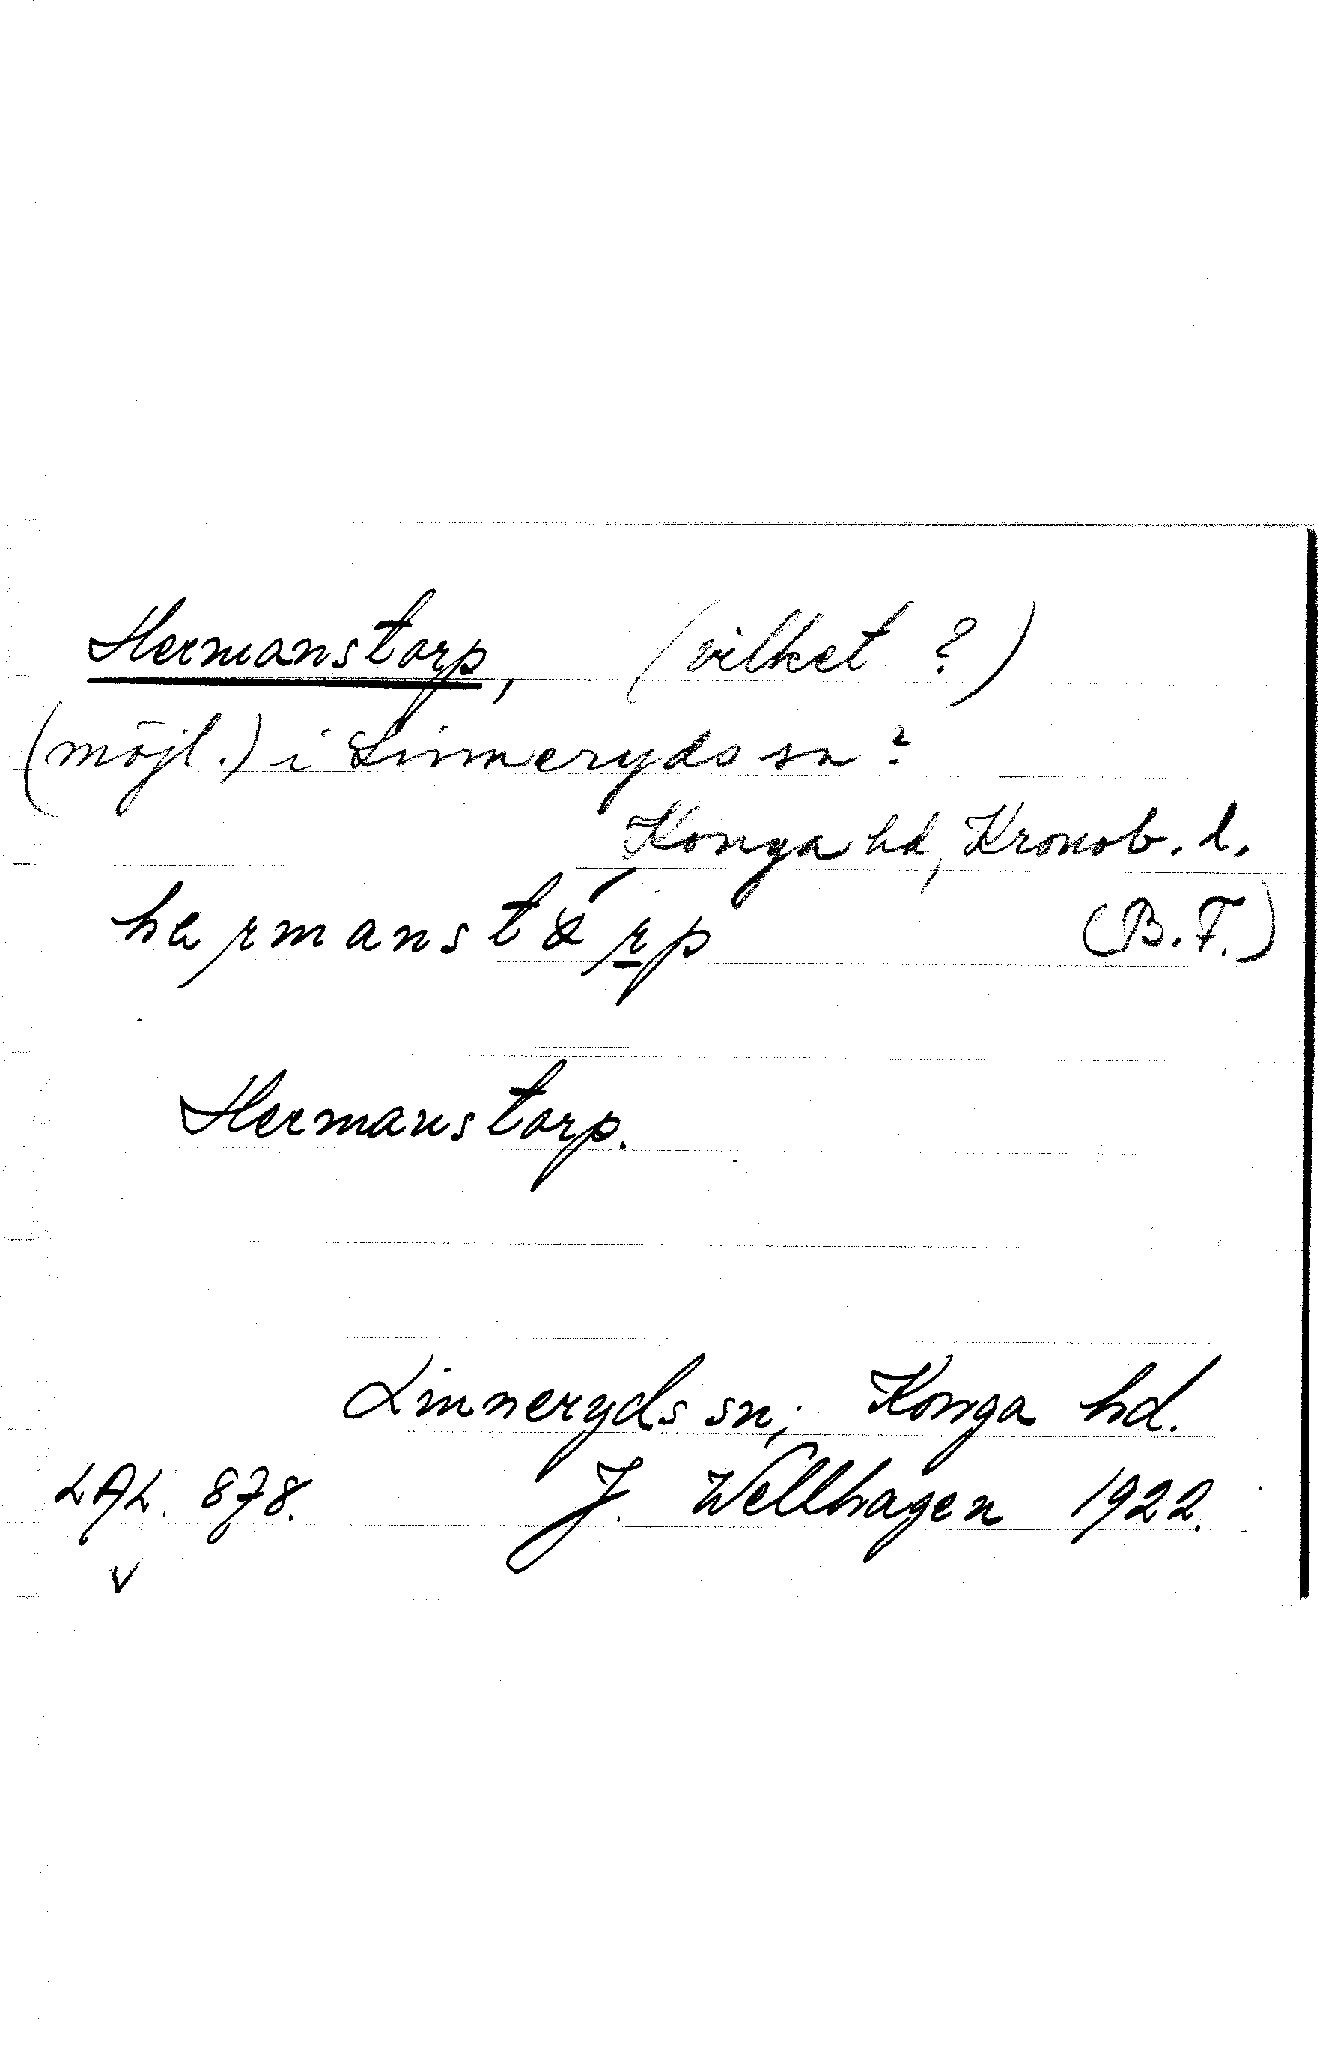 Hermanstorp, (vilket ?)
(möjl.) i Linneryds sn ?
Konga hd, Kronob. l.
hermanstɑ́rp (B.F.)
Hermanstorp.
Linneryds sn; Konga hd.
LAL. 878. J. Wellhagen 1922.
v